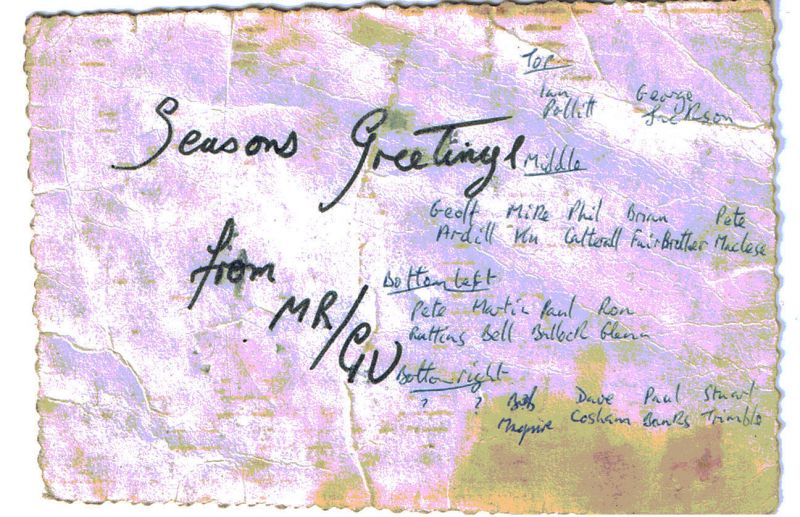 Seasons Greetings
from
MR/GV
Top
Ian George
Pollitt Jackson
Middle
Geoff Mike Phil Brian Pete
Ardill Catterall FairBrother Maclese
Bottom Left
Pete Martin Paul Ron
Bell Bullock
Bottom right
? ? Bob Dave Paul Stuart
Maguire Cosham Banks Trimble